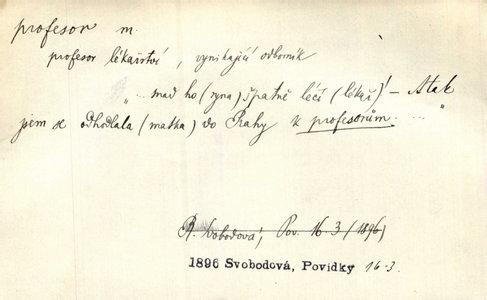 profesor m.
profesor lékařství, vynikající odborník
„... snad ho (syna) špatně léčí (lékař)! – A tak
jsem se odhodlala (matka) do Prahy k profesorům. ... "
R. Svobodová, Pov. 16.3 (1896)
1896 Svobodová, Povidky 16-3.